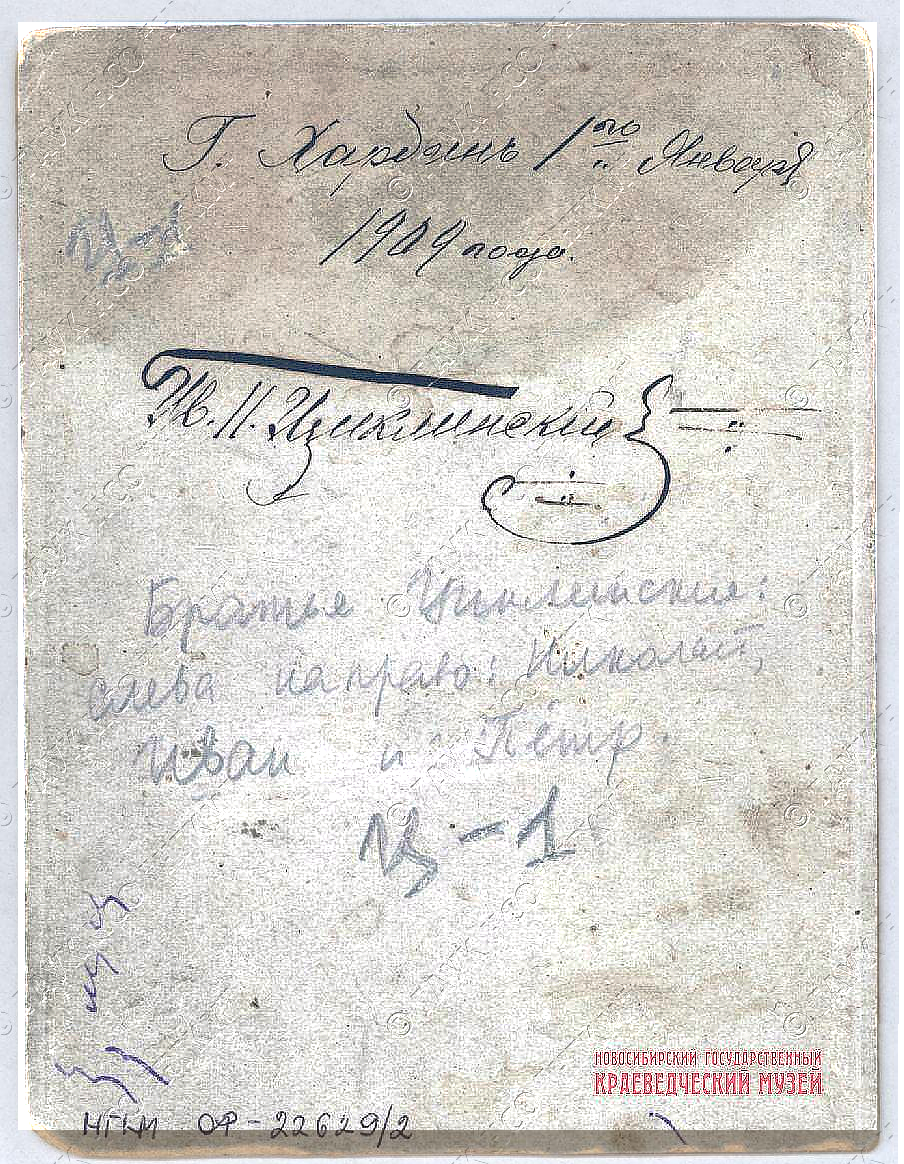 Г. Харбинъ 1го Января
1909 года.
Ц-1
Ив. Н. Циклинский
Братья Циклинские:
слева направо: Николай,
Иван и Пётр.
Ц-1
НОВОСИБИРСКИЙ ГОСУДАРСТВЕННЫЙ
КРАЕВЕДЧЕСКИЙ МУЗЕЙ
НГКМ ОФ-22629/2